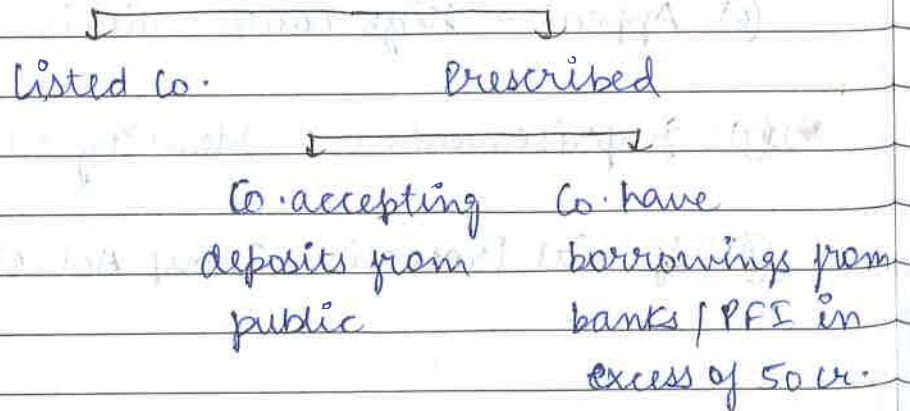 Listed Co.
Prescribed
Co. accepting
deposits from
public
Co. have
borrowings from
banks / PFI in
excess of 50 cr.